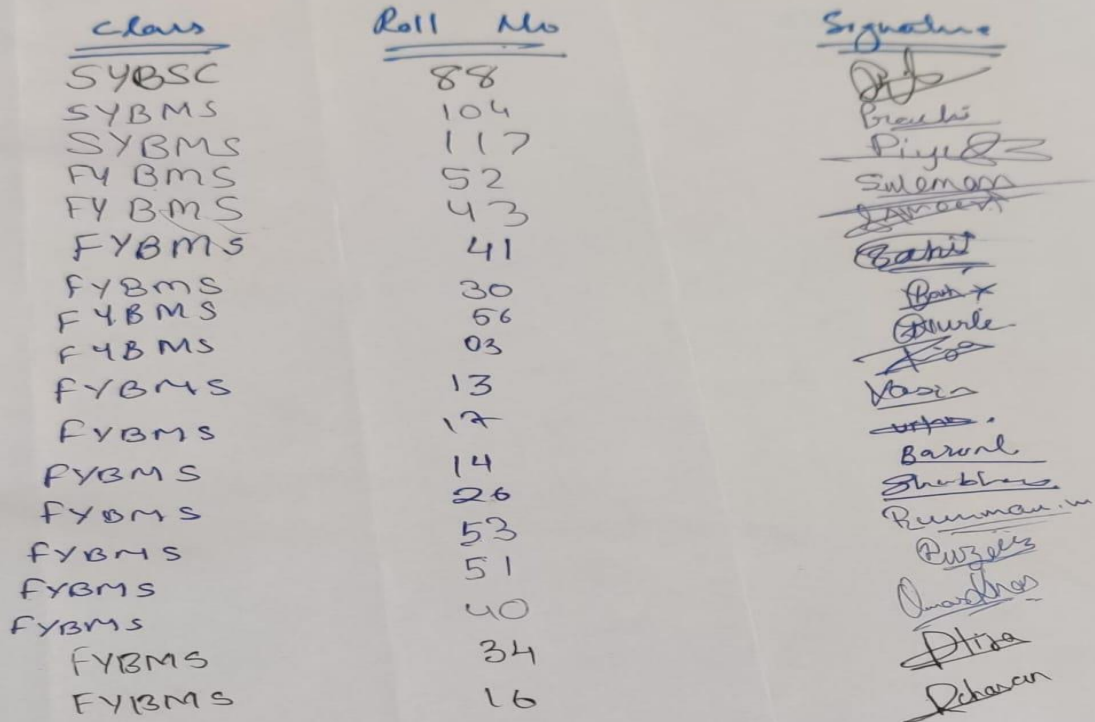 Class Roll No Signature
SYBSC 88
SYBMS 104 Prachi
SYBMS 117 Piyu
FYBMS 52 Suleman
FYBMS 43
FYBMS 41 Sahil
FYBMS 30
FYBMS 56
FYBMS 03
FYBMS 13 Yasin
FYBMS 17
FYBMS 14
FYBMS 26 Shubham
FYBMS 53 Rumman.m
FYBMS 51
FYBMS 40
FYBMS 34
FYBMS 16